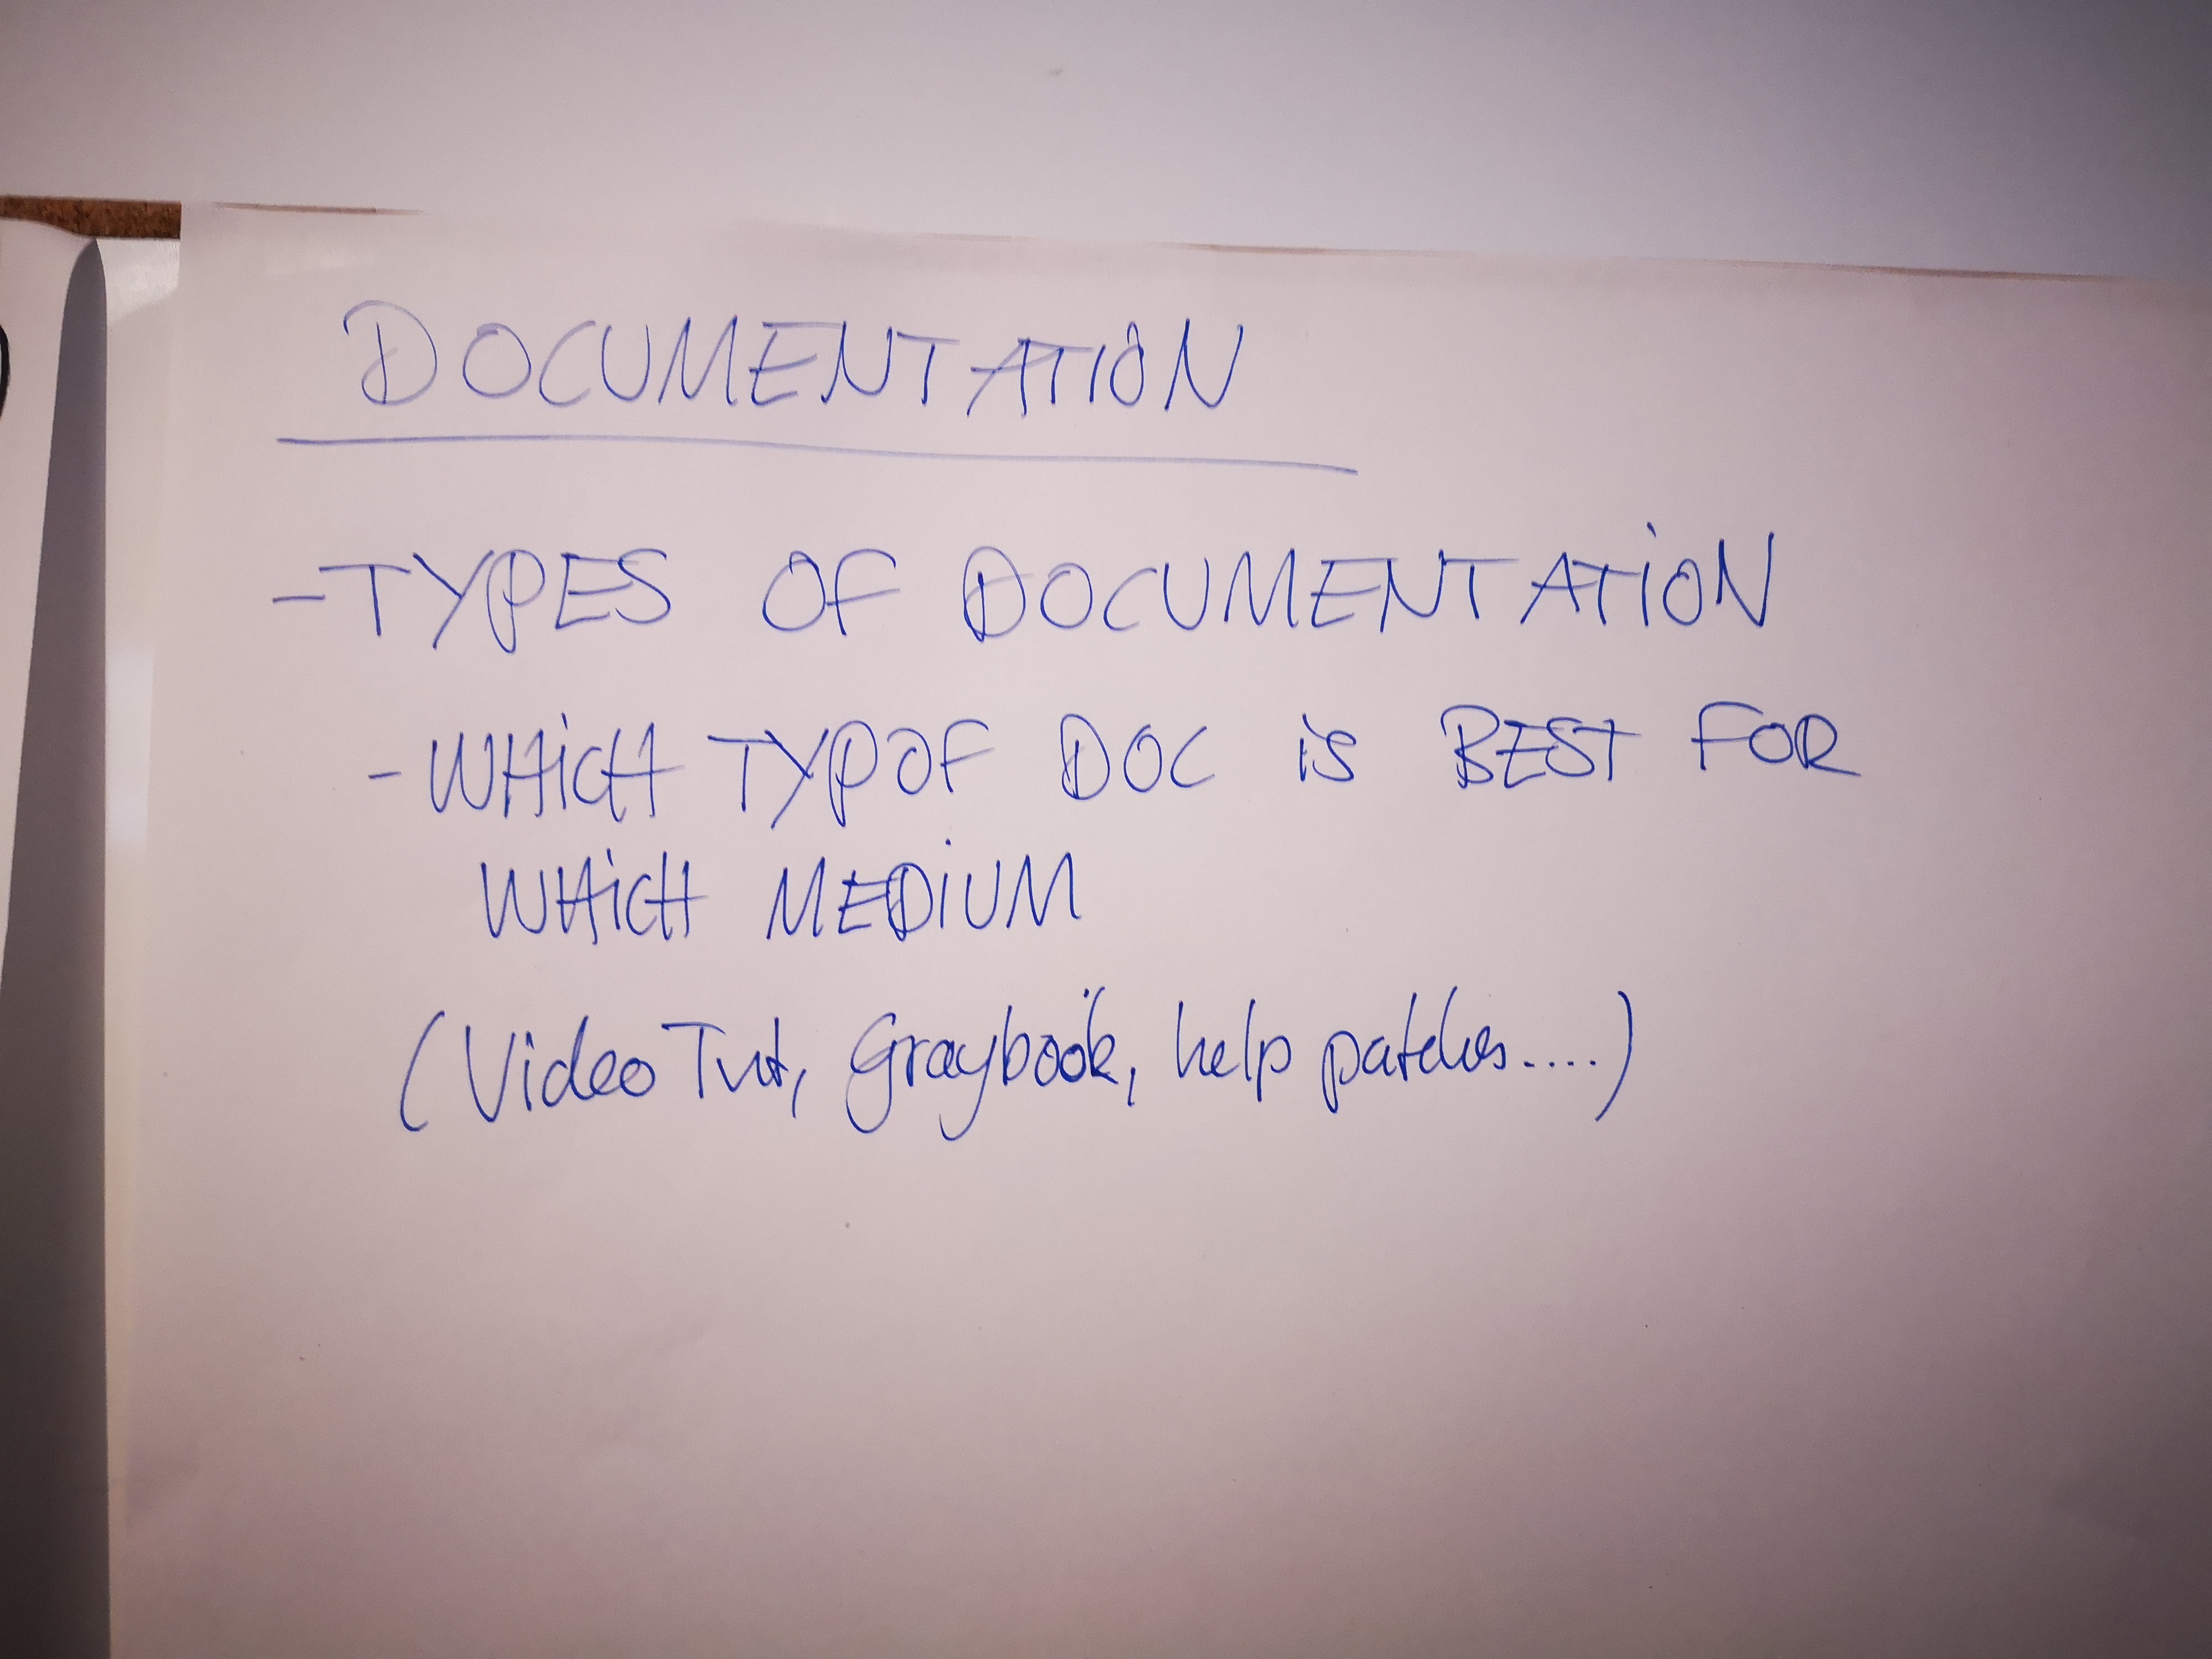 DOCUMENTATION
- TYPES OF DOCUMENTATION
- WHiCH TYP OF DOC iS BEST FOR
WHiCH MEDiUM
(Video Tut, Graybook, help patches....)